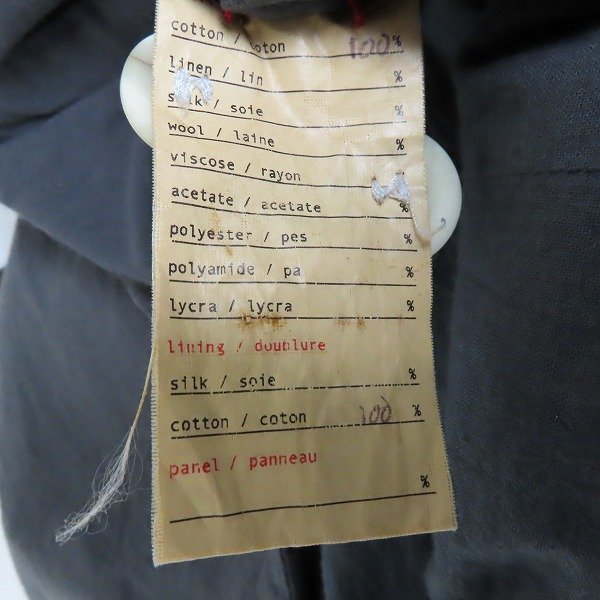 cotton / coton 100%
linen / lin %
silk / soie %
wool / laine %
viscose / rayon
acetate / acetate %
polyester / pes %
polyamide / pa %
lycra / lycra %
lining / doublure
silk / soie %
cotton / coton 100 %
panel / panneau
%